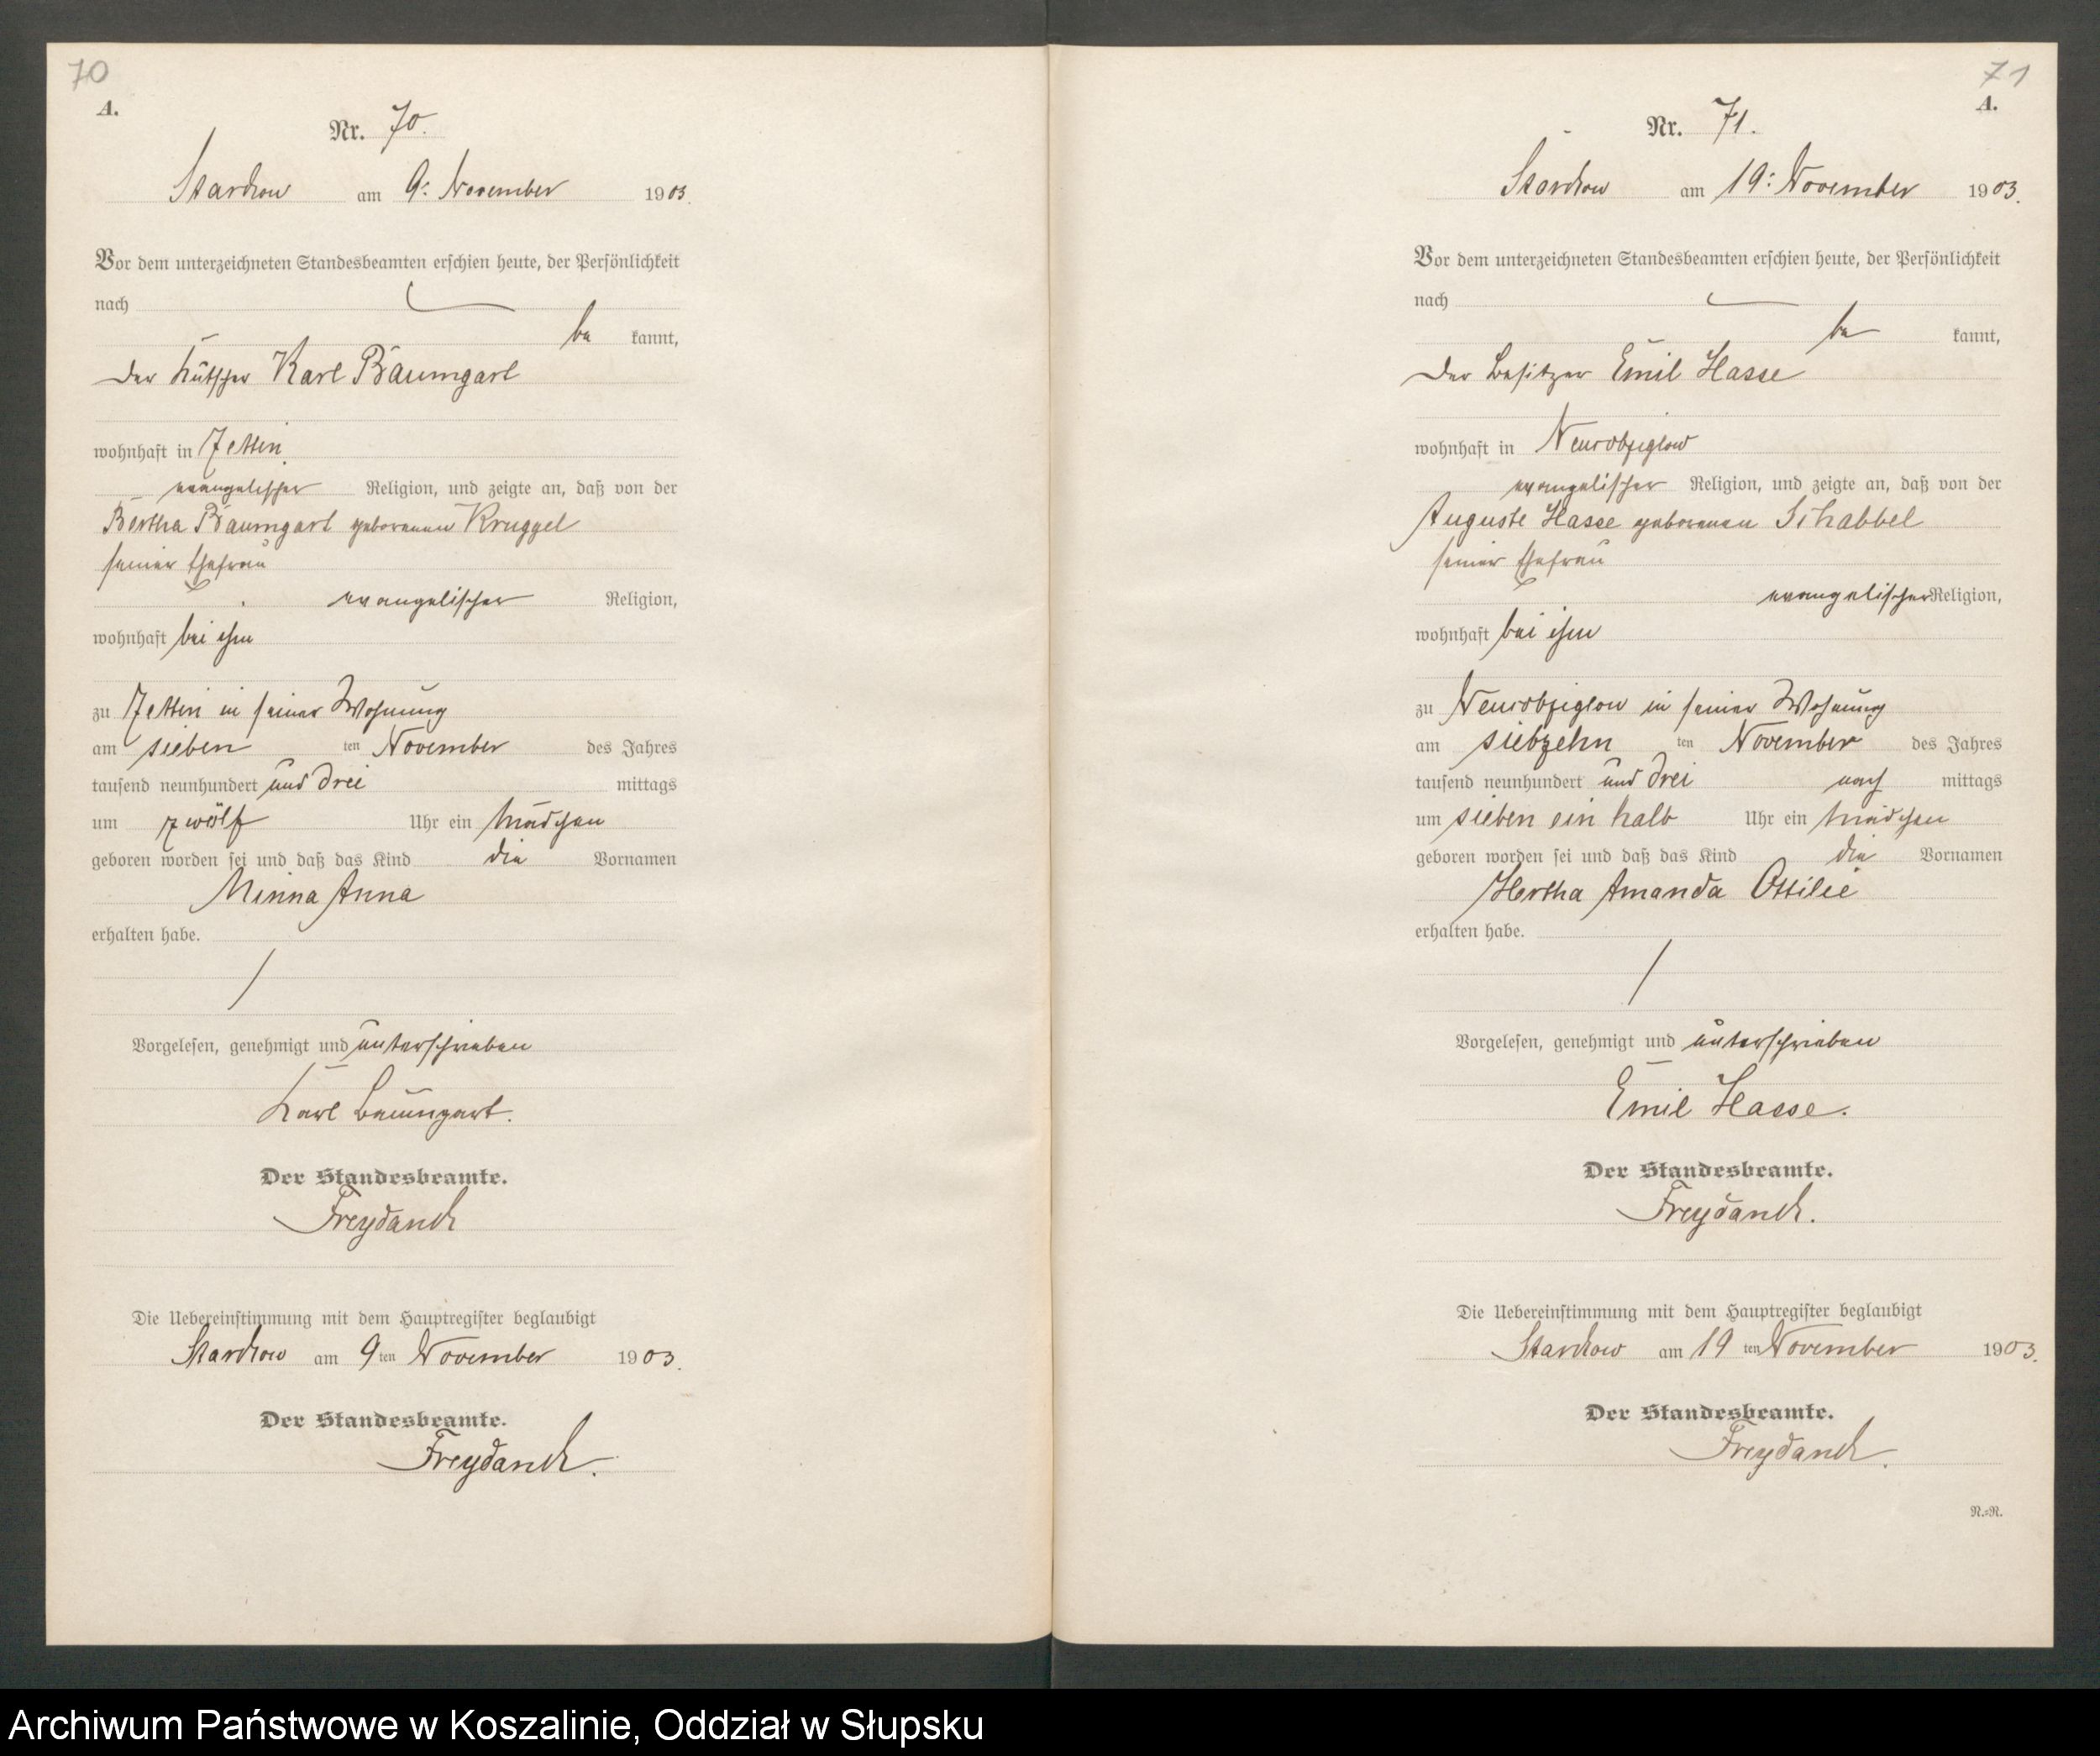 70
A.
Nr. 70.
Starckow am 9: November 1903.
Vor dem unterzeichneten Standesbeamten erschien heute, der Persönlichkeit
nach
be kannt,
der Kutscher Karl Baumgart
wohnhaft in Zettin
evangelischer Religion, und zeigte an, daß von der
Bertha Baumgart geborenen Kruggel
seiner Ehefrau
evangelischer Religion,
wohnhaft bei ihm
zu Zettin in seiner Wohnung
am sieben ten November des Jahres
tausend neunhundert und drei mittags
um zwölf Uhr ein Mädchen
geboren worden sei und daß das Kind die Vornamen
Minna Anna
erhalten habe.
Vorgelesen, genehmigt und unterschrieben
Karl Baumgart.
Der Standesbeamte.
Freydanck
Die Uebereinstimmung mit dem Hauptregister beglaubigt
Starckow am 9 ten November 1903.
Der Standesbeamte.
Freydanck.
71
A.
Nr. 71.
Starckow am 19: November 1903.
Vor dem unterzeichneten Standesbeamten erschien heute, der Persönlichkeit
nach
be kannt,
der Besitzer Emil Hasse
wohnhaft in Neurobziglow
evangelischer Religion, und zeigte an, daß von der
Auguste Hasse geborenen Schabbel
seiner Ehefrau
evangelischer Religion,
wohnhaft bei ihm
zu Neurobziglow in seiner Wohnung
am siebzehn ten November des Jahres
tausend neunhundert und drei nach mittags
um sieben ein halb Uhr ein Mädchen
geboren worden sei und daß das Kind die Vornamen
Hertha Amanda Ottilie
erhalten habe.
Vorgelesen, genehmigt und unterschrieben
Emil Hasse.
Der Standesbeamte.
Freydanck.
Die Uebereinstimmung mit dem Hauptregister beglaubigt
Starckow am 19 ten November 1903.
Der Standesbeamte.
Freydanck.
N.=N.
Archiwum Państwowe w Koszalinie, Oddział w Słupsku